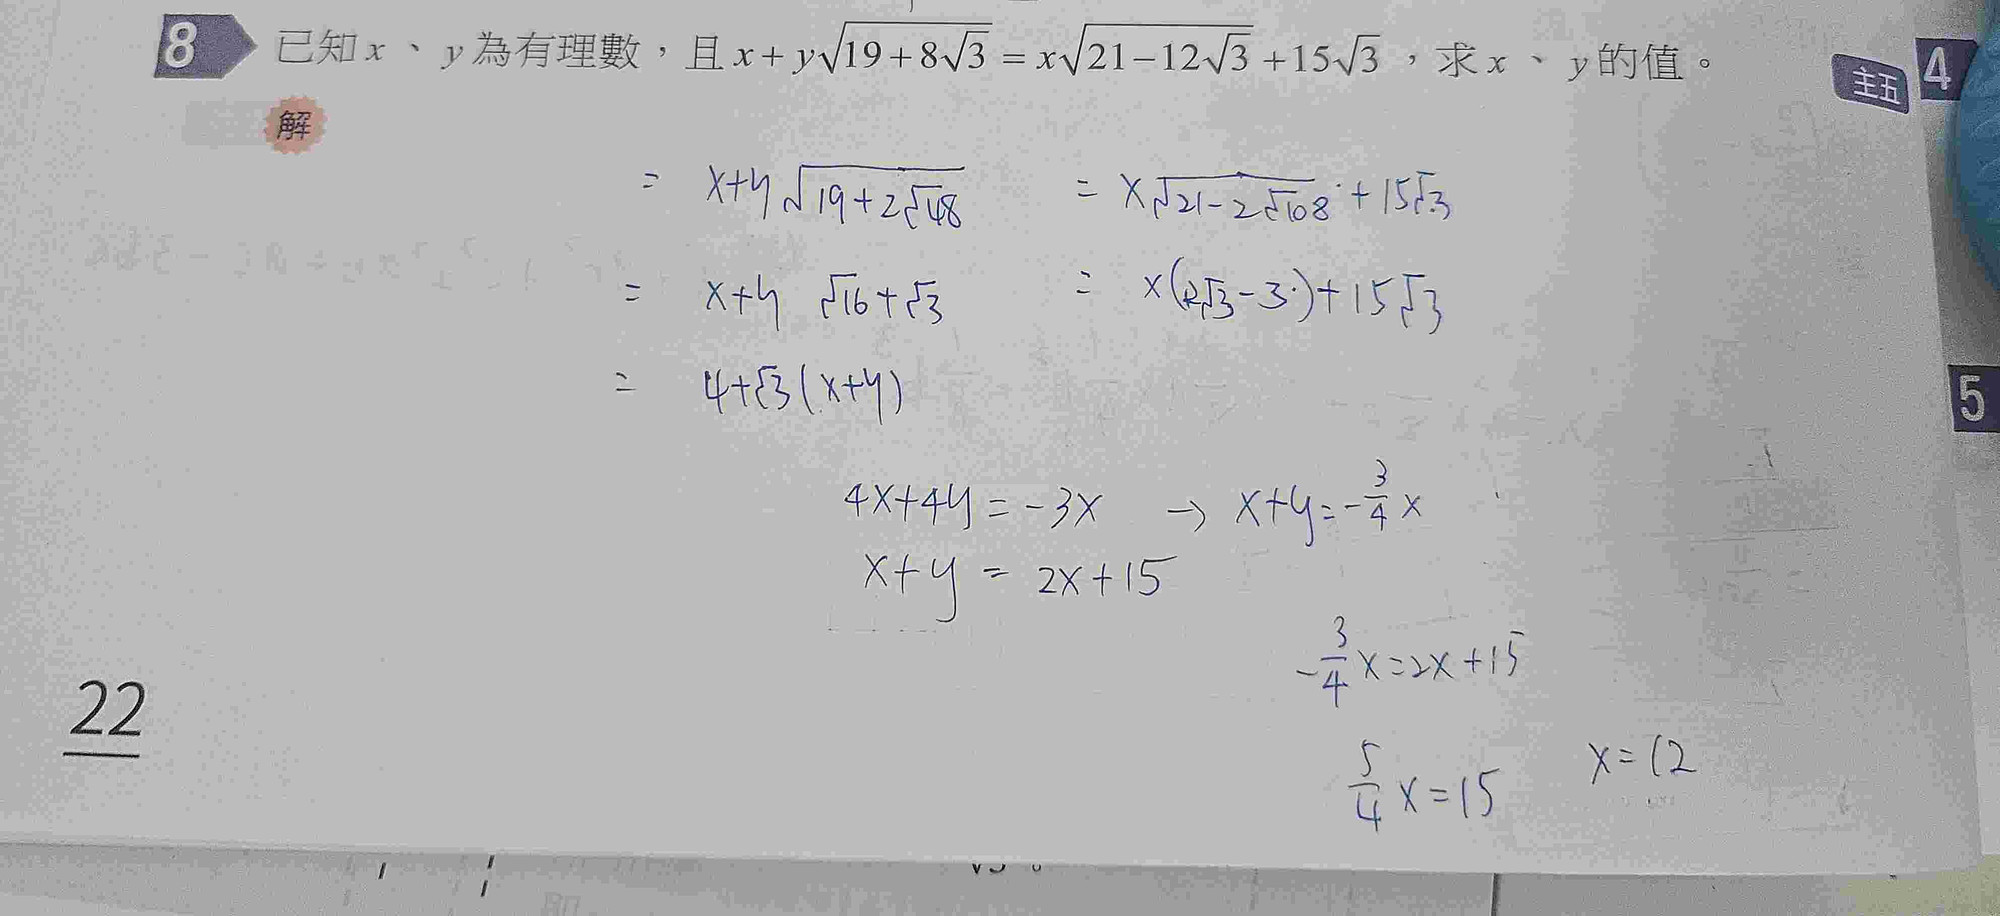 8 已知 x 、 y 為有理數，且 x + y√(19+8√3) = x√(21−12√3) +15√3 ，求 x 、 y 的值。
主五 4
解
= x+y √(19+2√48) = x√(21-2√108) + 15√3
= x+y √16+√3 = x(2√3-3)+15√3
= 4+√3(x+y)
5
4x+4y = -3x → x+y = -3/4 x
x+y = 2x+15
-3/4 x = 2x+15
22
5/4 x = 15 x = 12